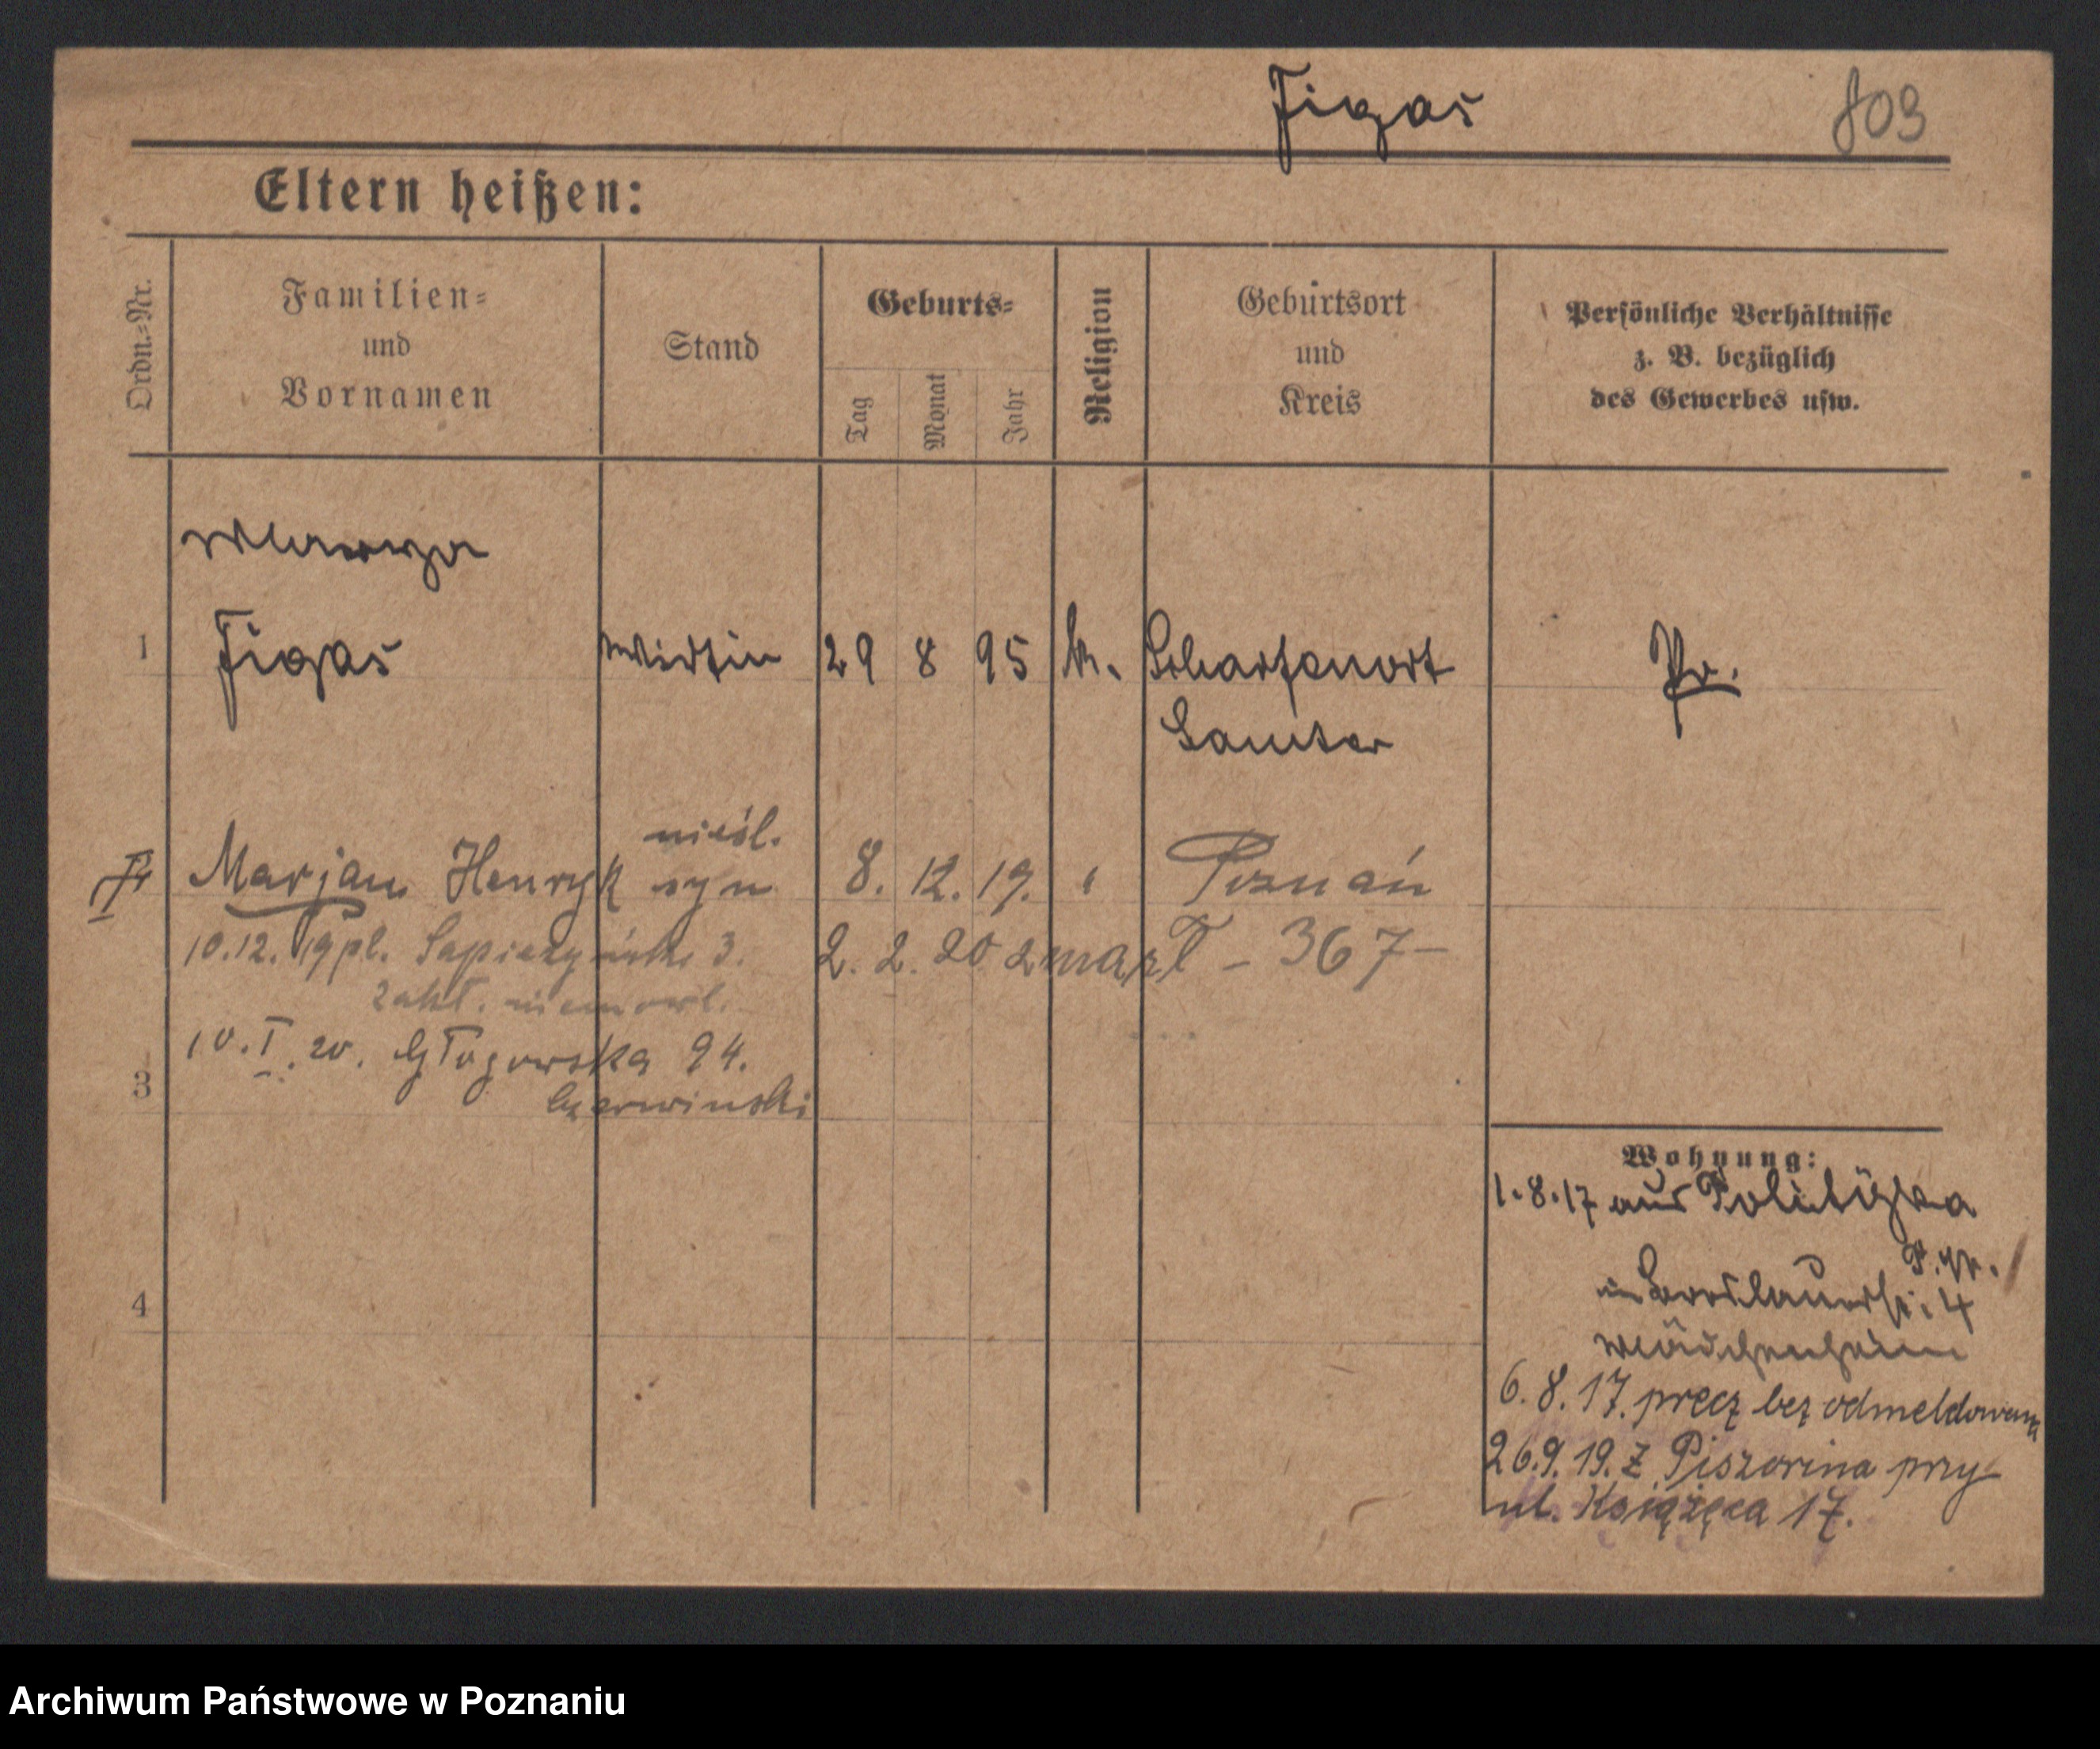 Figas 803
Eltern heißen:
Ordn.-Nr.
Familien-
und
Vornamen
Stand
Geburts-
Tag
Monat
Jahr
Religion
Geburtsort
und
Kreis
Persönliche Verhältnisse
z. B. bezüglich
des Gewerbes usw.
1 Figas Wirtin 29 8 95 k. Scharfenort Pr.
Samter
nieśl.
Marjan Henryk syn 8. 12. 19. " Poznań
10.12.19 pl. Sapieżyński 3. 2. 2. 20 zmarł - 367 -
zakł. niemowl.
10. I. 20. Głogowska 94.
3 Czerwinski
Wohnung:
1.8.17 aus
in Breslauerstr. 4
4 Mädchenheim
6. 8. 17. precz bez odmeldowania
26.9.19. z przy
ul. Książęca 17.
Archiwum Państwowe w Poznaniu